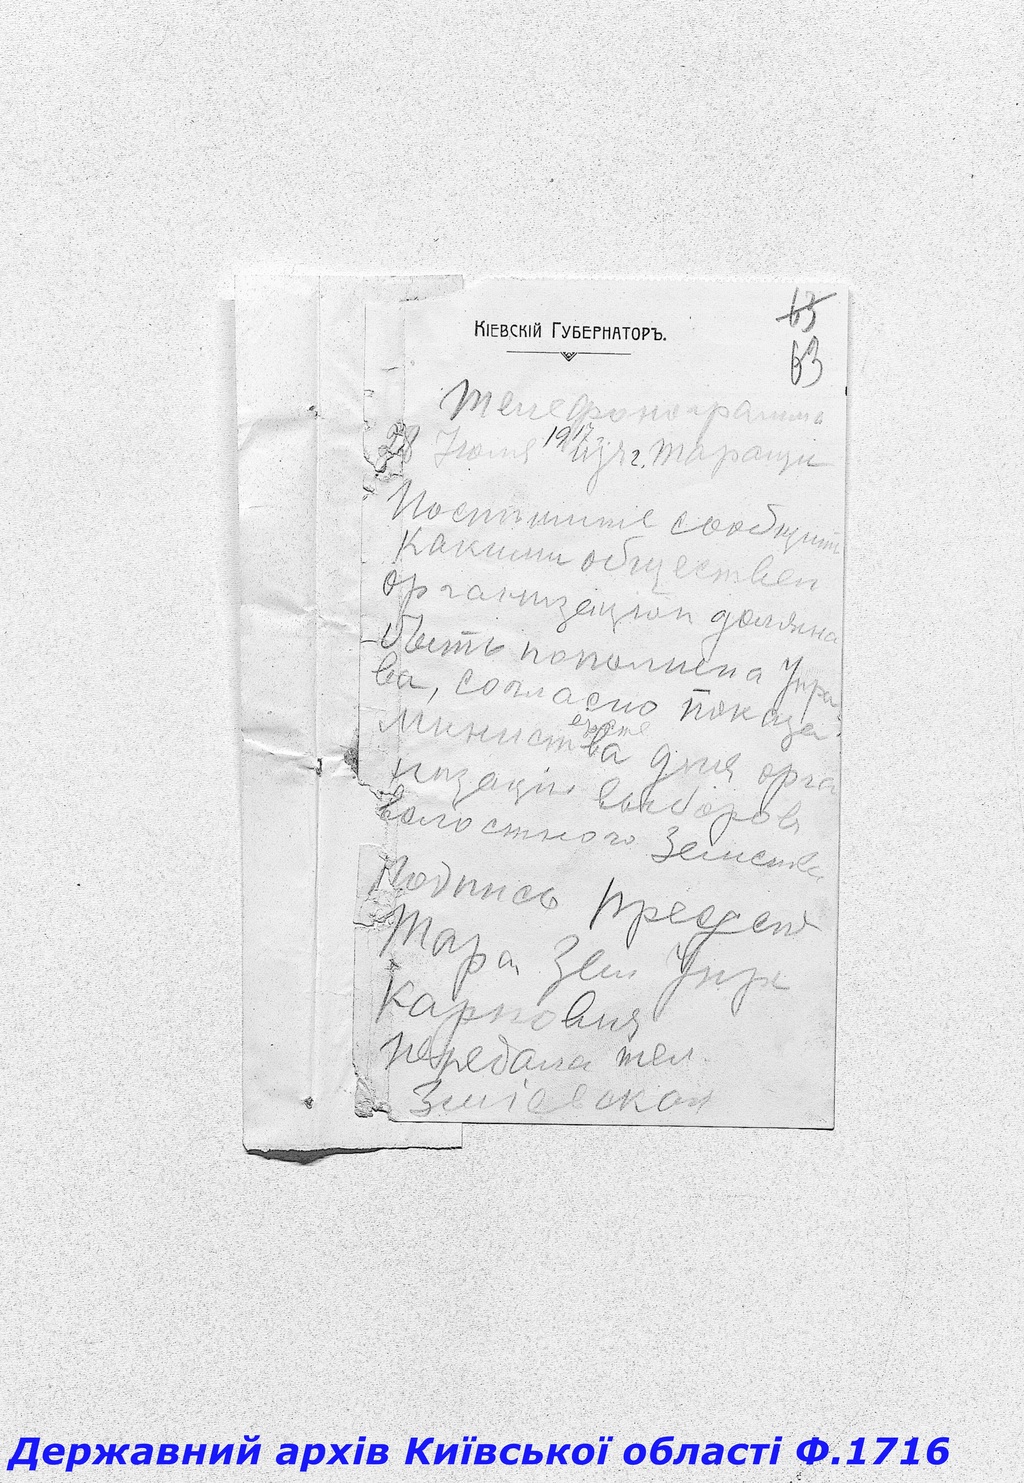 63
63
Кіевскій Губернаторъ.
Телефонограмма
28 Іюля 1917 из г. Таращи
Поспѣшите сообщить
какими обществен
организаціи должна
быть пополнена Упра
ва, согласно
Министерства для орга
низаціи выборовъ
волостного Земства
Подпись Предсѣд
Тара Зем Упр
Карповия
Передала тел.
Зміевская
Державний архів Київської області Ф.1716